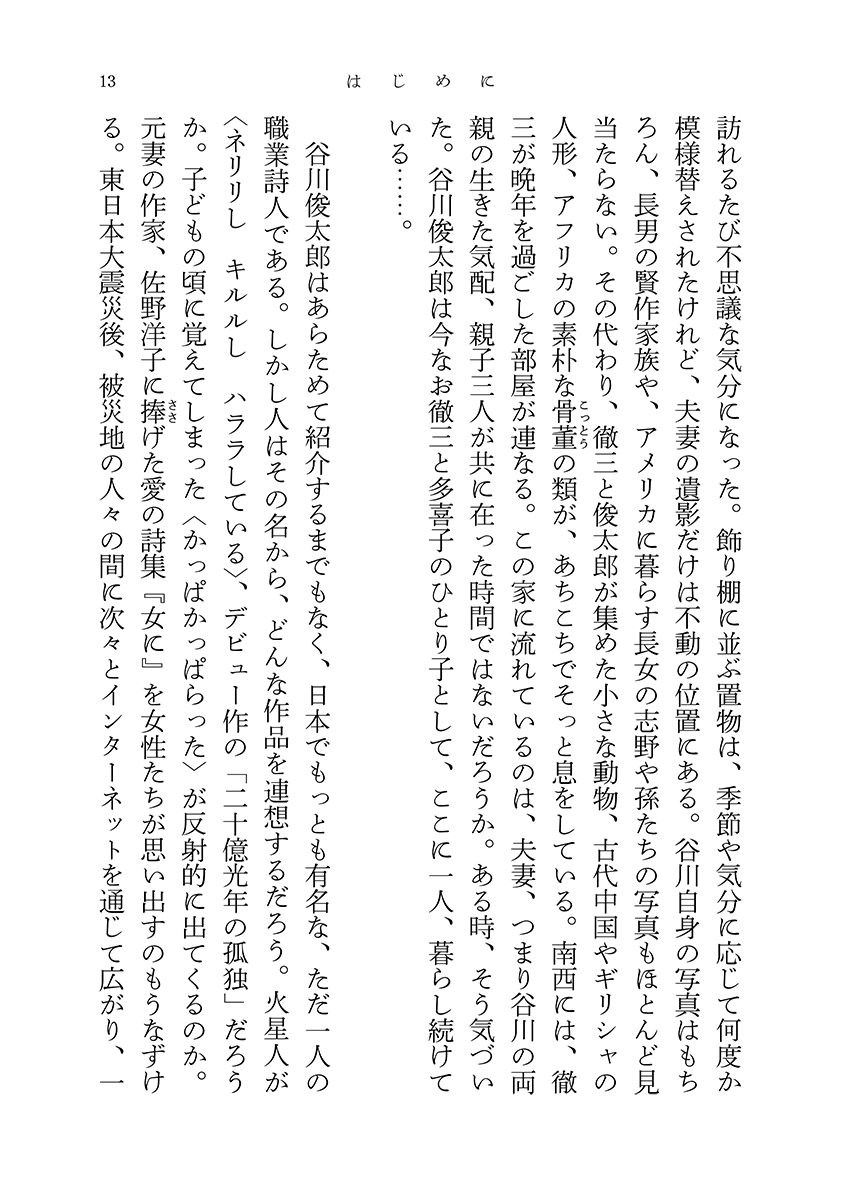 13
はじめに
訪れるたび不思議な気分になった。飾り棚に並ぶ置物は、季節や気分に応じて何度か
模様替えされたけれど、夫妻の遺影だけは不動の位置にある。谷川自身の写真はもち
ろん、長男の賢作家族や、アメリカに暮らす長女の志野や孫たちの写真もほとんど見
当たらない。その代わり、徹三と俊太郎が集めた小さな動物、古代中国やギリシャの
人形、アフリカの素朴な骨董の類が、あちこちでそっと息をしている。南西には、徹
こっとう
三が晩年を過ごした部屋が連なる。この家に流れているのは、夫妻、つまり谷川の両
親の生きた気配、親子三人が共に在った時間ではないだろうか。ある時、そう気づい
た。谷川俊太郎は今なお徹三と多喜子のひとり子として、ここに一人、暮らし続けて
いる……。
谷川俊太郎はあらためて紹介するまでもなく、日本でもっとも有名な、ただ一人の
職業詩人である。しかし人はその名から、どんな作品を連想するだろう。火星人が
〈ネリリし　キルルし　ハララしている〉、デビュー作の「二十億光年の孤独」だろう
か。子どもの頃に覚えてしまった〈かっぱかっぱらった〉が反射的に出てくるのか。
元妻の作家、佐野洋子に捧げた愛の詩集『女に』を女性たちが思い出すのもうなずけ
ささ
る。東日本大震災後、被災地の人々の間に次々とインターネットを通じて広がり、一